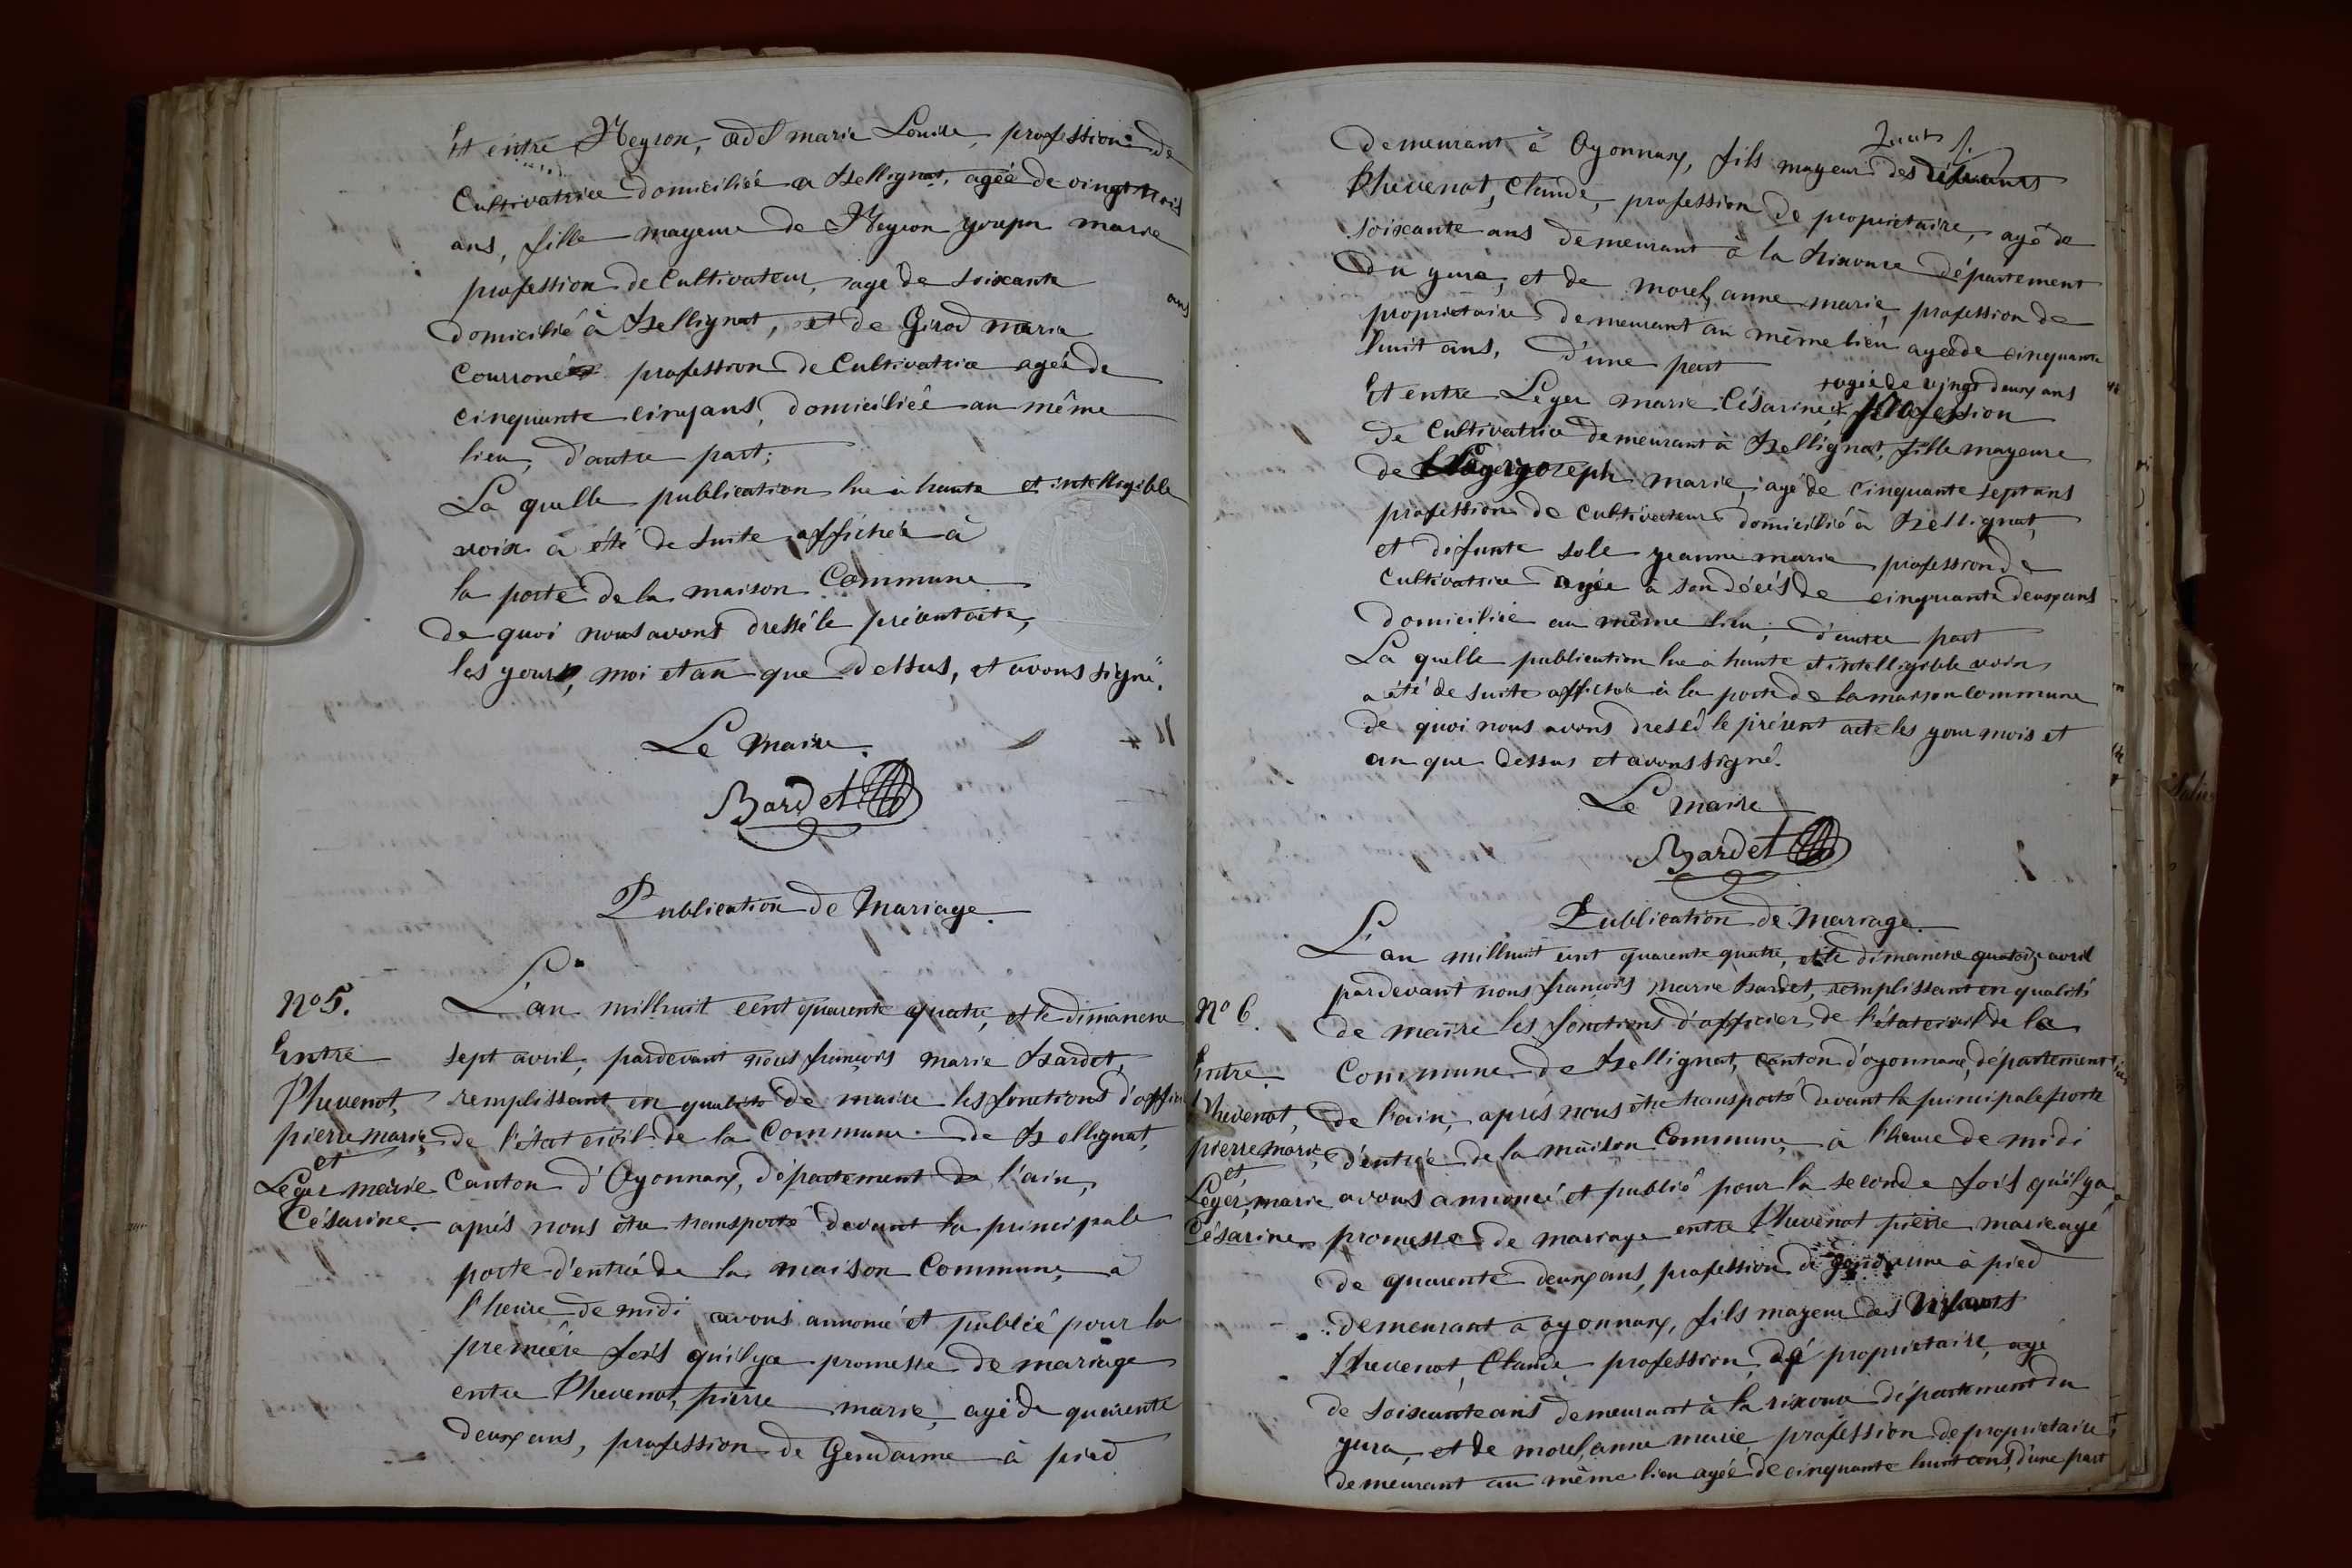 Et entre Neyron, adel marie Louise, profession de
Cultivatrice domiciliée a Izellignat, agée de vingt trois
ans, fille mayeure de Neyron yoseph marie
profession de Cultivateur, agé de soixante ans
domicilié à Izellignat, et de Girod marie
Couronée profession de Cultivatrice agée de
cinquante cinq ans, domiciliée au même
lieu, d'autre part;
La quelle publication lue à haute et intelligible
voix à été de suite affichée à
la porte de la maison Commune
de quoi nous avons dressé le présent acte,
les yours, moi et an que dessus, et avons signé.
Le maire.
Bardet
Publication de Mariage.
No 5.
Entre
Thevenot,
pierre marie,
et
Leger marie
Césarine.
L'an mil huit cent quarente quatre, et le dimanche
sept avril, pardevant nous françois marie Bardet,
remplissant en qualité de maire les fonctions d'officier
de l'état civil de la Commune de Izellignat,
Canton d'Oyonnax, département de l'ain,
après nous être transporté devant la principale
porte d'entrée de la maison Commune, à
l'heure de midi avons annoncé et publié pour la
première fois qu'il ya promesse de mariage
entre Thevenot, pierre marie, agé de quarente
deux ans, profession de Gendarme à pied
demeurant à Oyonnax, fils mayeur des
Thevenot, Claude, profession de propriétaire, agé de
soixante ans demeurant à la rixouse département
du yura, et de morel, anne marie, profession de
propriétaire demeurant au même lieu agée de cinquante
huit ans, d'une part
Et entre Leger marie Césarine, agée de vingt deux ans profession
de Cultivatrice demeurant à Izellignat, fille mayeure
de Léger yoseph marie, agé de cinquante sept ans
profession de cultivateur domicilié à Izellignat,
et défunte sole yeanne marie profession de
Cultivatrice agée à son décés de cinquante deux ans
domiciliée au même lieu, d'autre part
La quelle publication lue à haute et intelligible voix
a été de suite affichée à la porte de la maison commune
de quoi nous avons dressé le présent acte les your mois et
an que dessus et avons signé.
Le maire
Bardet
Publication de Mariage.
No 6.
Entre
Thevenot,
pierre marie,
et
Léger, marie
Césarine
L'an mil huit cent quarente quatre, et le dimanche quatorze avril
pardevant nous françois marie Bardet, remplissant en qualité
de maire les fonctions d'officier de l'état civil de la
Commune de Izellignat, canton d'oyonnax, département
de l'ain, après nous être transporté devant la principale porte
d'entrée de la maison Commune, à l'heure de midi
avons annoncé et publié pour la seconde fois qu'il ya
promesse de mariage entre Thevenot pierre marie agé
de quarente deux ans, profession de gendarme à pied
demeurant à oyonnax, fils mayeur des
Thevenot, Claude, profession de propriétaire, agé
de soixante ans demeurant à la rixouse département du
yura, et de morel, anne marie profession de propriétaire
demeurant au même lieu agée de cinquante huit ans, d'une part